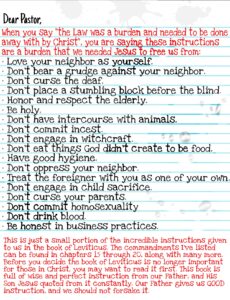 Dear Pastor,
When you say "the Law was a burden and needed to be
done away with by Christ", you are saying these instructions
are a burden that we needed Jesus to free us from:
· Love your neighbor as yourself.
· Don't bear a grudge against your neighbor.
· Don't curse the deaf.
· Don't place a stumbling block before the blind.
· Honor and respect the elderly.
· Be holy.
· Don't have intercourse with animals.
· Don't commit incest.
· Don't engage in witchcraft.
· Don't eat things God didn't create to be food.
· Have good hygiene.
· Don't oppress your neighbor.
· Treat the foreigner with you as one of your own.
· Don't engage in child sacrifice.
· Don't curse your parents.
· Don't commit homosexuality
· Don't drink blood.
· Be honest in business practices.
This is just a small portion of the incredible instructions given
to us in the book of Leviticus. The commandments I've listed
can be found in chapters 17 through 20, along with many more.
Before you decide the book of Leviticus is no longer important
for those in Christ, you may want to read it first. This book is
full of wise and perfect instruction from our Father, and His
Son Jesus quoted from it constantly. Our Father gives us GOOD
instruction, and we should not forsake it.